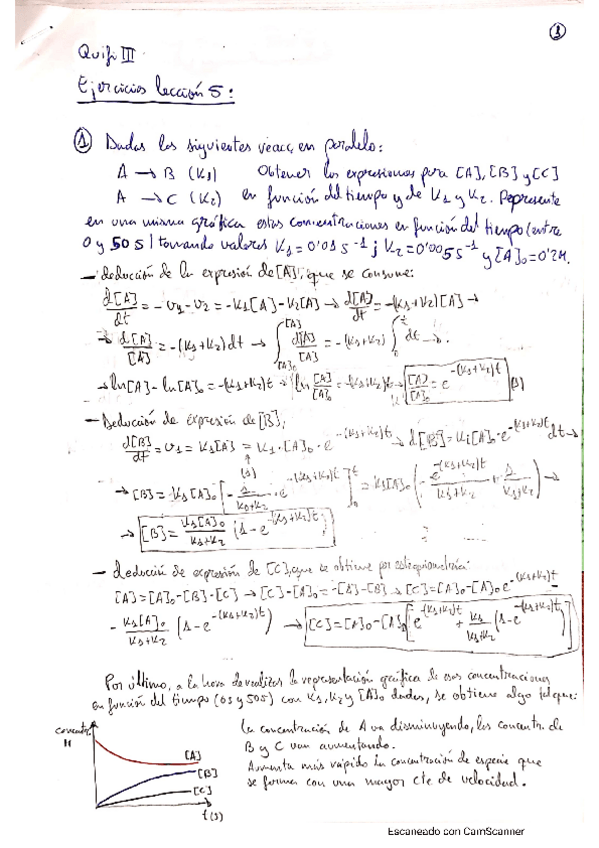 ①
Quifi III
Ejercicios lección 5:
① Dadas las siguientes reacc. en paralelo:
A → B (K1) Obtener las expresiones para [A], [B] y [C]
A → C (K2) en función del tiempo y de K1 y K2. Represente
en una misma gráfica estas concentraciones en función del tiempo (entre
0 y 50 s) tomando valores K1 = 0'01 s⁻¹ ; K2 = 0'005 s⁻¹ y [A]₀ = 0'2M.
- deducción de la expresión de [A], que se consume:
d[A]/dt = -v1 - v2 = -K1[A] - K2[A] → d[A]/dt = -(K1+K2)[A] →
→ d[A]/[A] = -(K1+K2)dt → ∫ d[A]/[A] = -(K1+K2) ∫ dt →
→ ln[A] - ln[A]₀ = -(K1+K2)t → ln [A]/[A]₀ = -(K1+K2)t → [A]/[A]₀ = e^-(K1+K2)t
- Deducción de expresión de [B],
d[B]/dt = v1 = K1[A] = K1·[A]₀·e^-(K1+K2)t → d[B] = K1[A]₀·e^-(K1+K2)t dt →
→ [B] = K1[A]₀ [-1/(K1+K2) · e^-(K1+K2)t]₀^t = K1[A]₀ (-e^-(K1+K2)t/(K1+K2) + 1/(K1+K2)) →
→ [B] = K1[A]₀/(K1+K2) (1-e^-(K1+K2)t)
- deducción de expresión de [C], que se obtiene por estequiometría:
[A] = [A]₀ - [B] - [C] → [C] - [A]₀ = -[A] - [B] → [C] = [A]₀ - [A]₀ e^-(K1+K2)t -
- K1[A]₀/(K1+K2) (1-e^-(K1+K2)t) → [C] = [A]₀ - [A]₀ [e^-(K1+K2)t + K1/(K1+K2) (1-e^-(K1+K2)t)]
Por último, a la hora de realizar la representación gráfica de esas concentraciones
en función del tiempo (0s y 50s) con K1, K2 y [A]₀ dadas, se obtiene algo tal que:
concentr.
M
[A]
[B]
[C]
t(s)
La concentración de A va disminuyendo, las concentr. de
B y C van aumentando.
Aumenta más rápido la concentración de especie que
se forma con una mayor cte de velocidad.
Escaneado con CamScanner